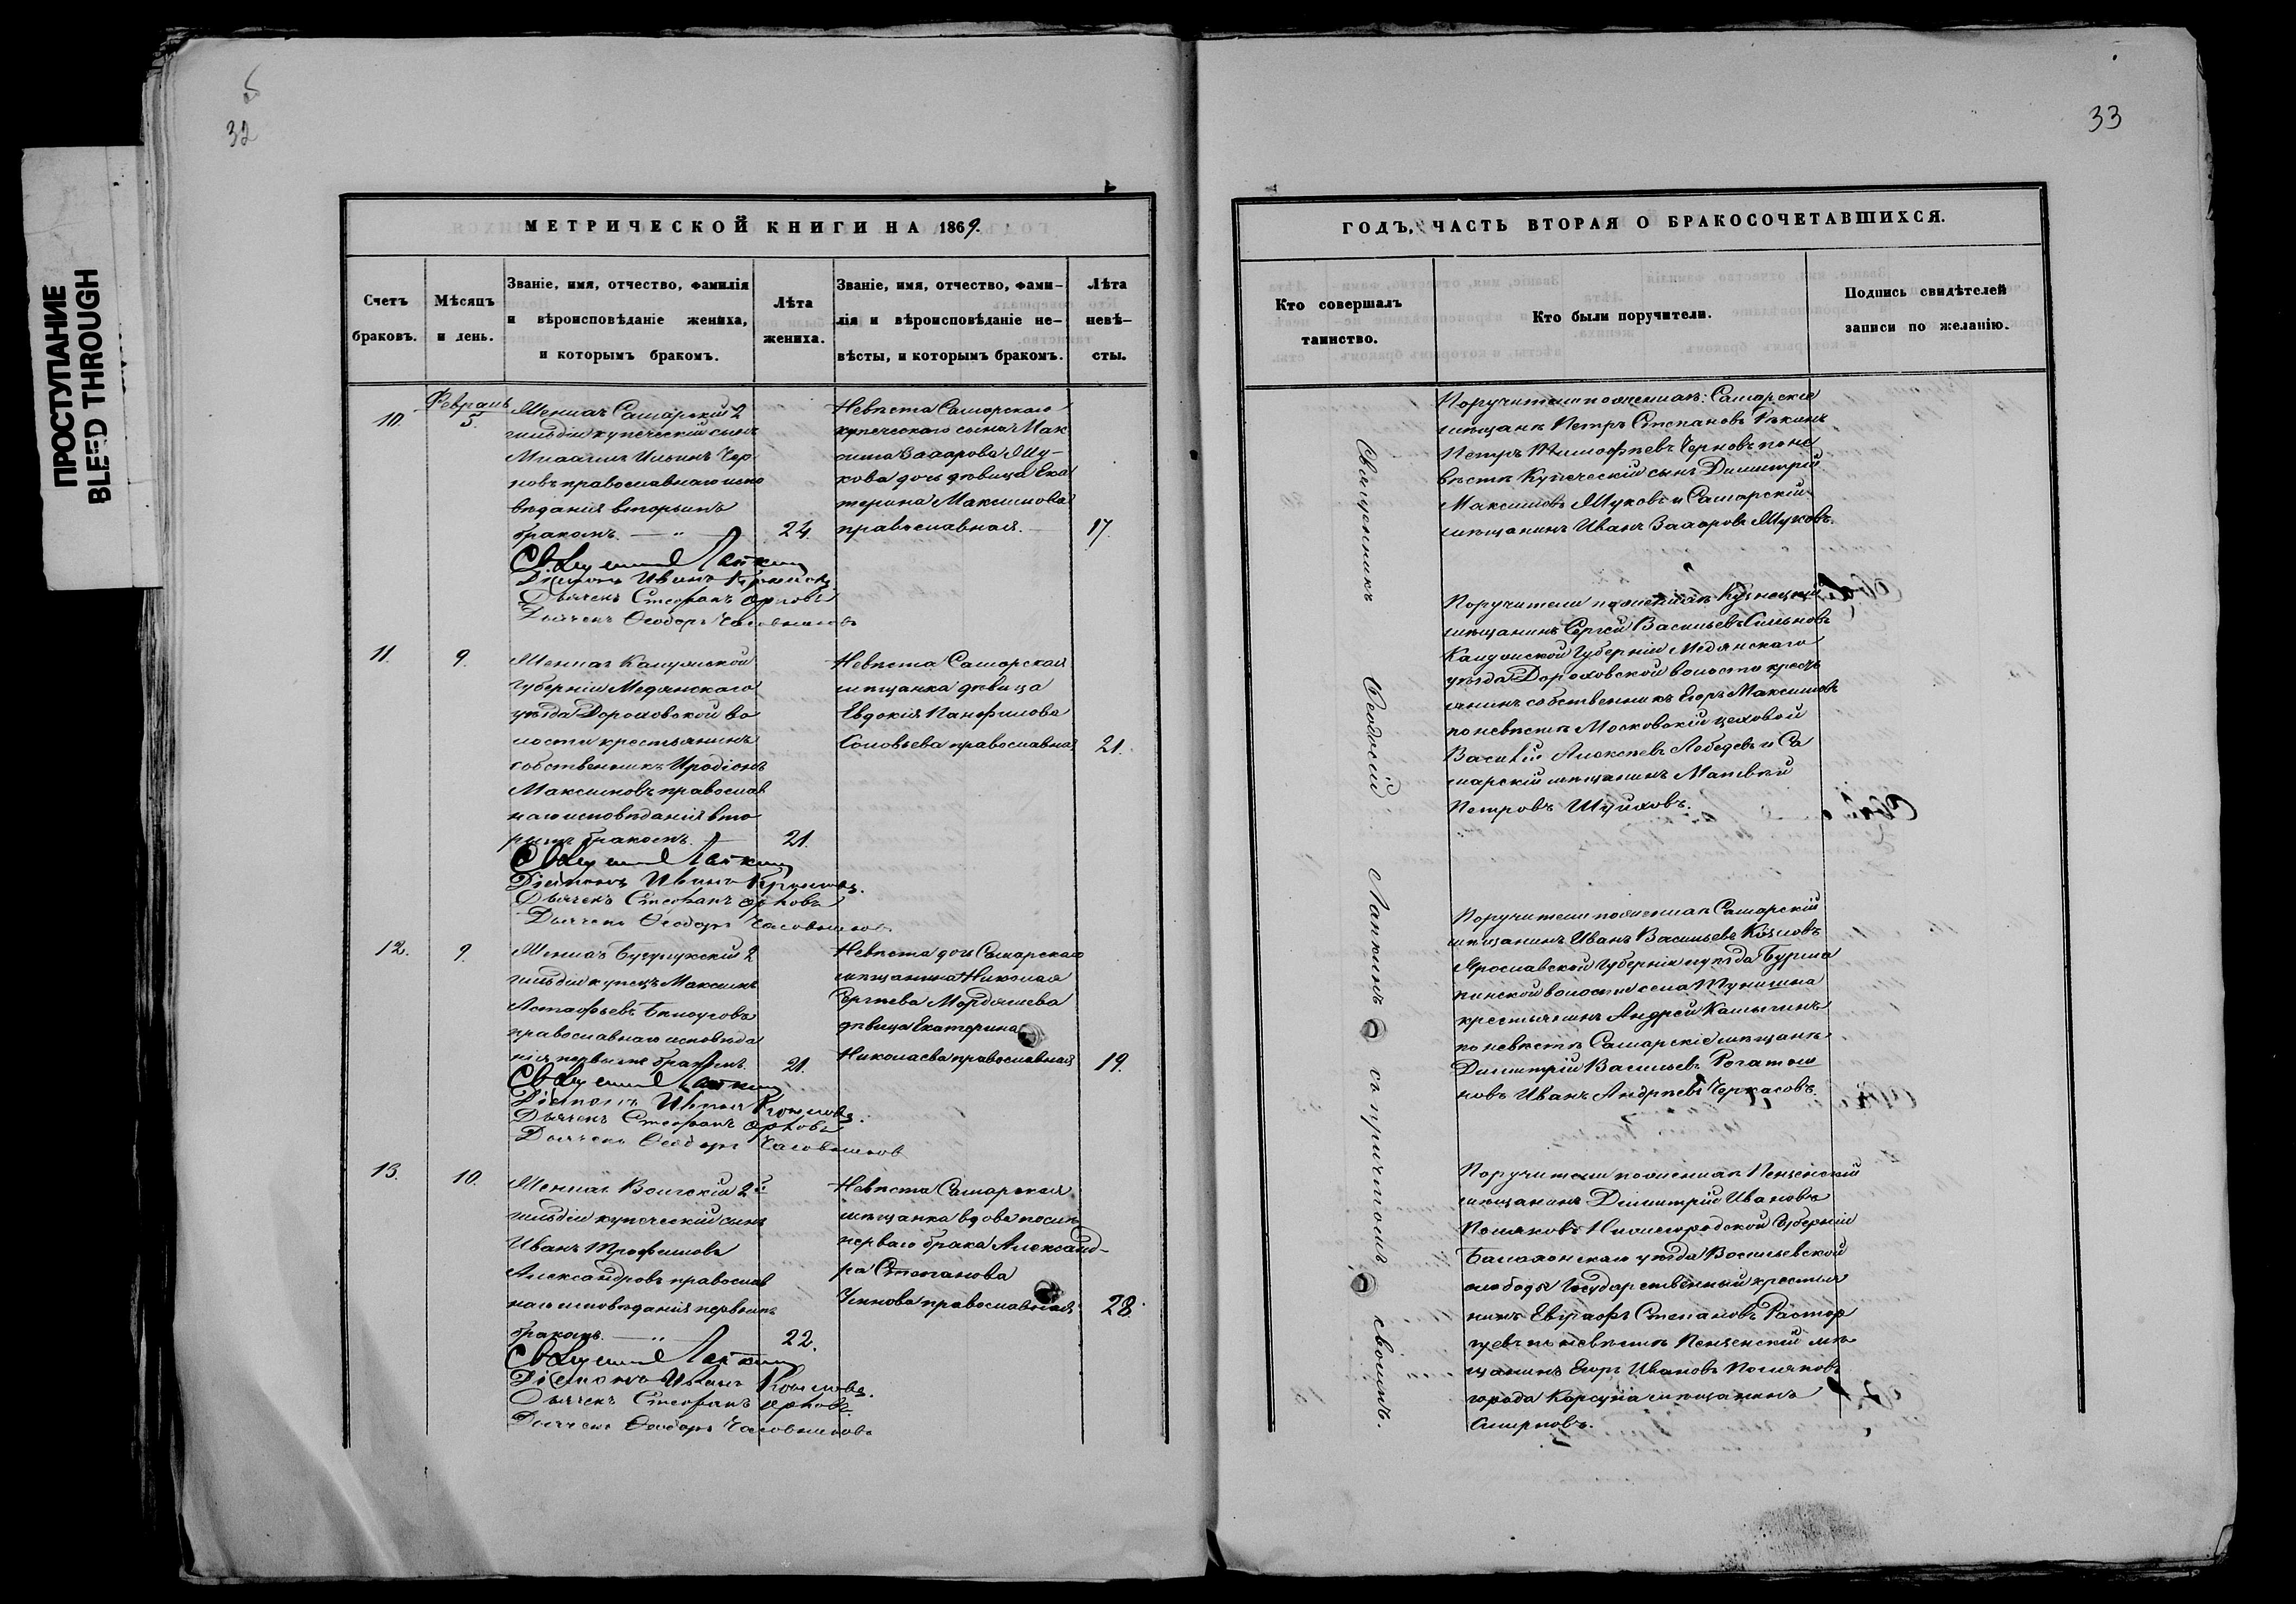 ПРОСТУПАНИЕ
BLEED THROUGH
32
МЕТРИЧЕСКОЙ КНИГИ НА 1869.
Счетъ браковъ.
Мѣсяцъ и день.
Званіе, имя, отчество, фамилія
и вѣроисповѣданіе жениха,
и которымъ бракомъ.
Лѣта жениха.
Званіе, имя, отчество, фами-
лія и вѣроисповѣданіе не-
вѣсты, и которымъ бракомъ.
Лѣта
невѣ-
сты.
10.
5.
Женихъ Самарскій 2
гильдіи купеческій сынъ
Михаилъ Ильинъ Чер
новъ православнаго испо
вѣданія вторымъ
бракомъ.
24.
Невѣста Самарскаго
купеческаго сына Мак
сима Захарова Жу-
кова дочь дѣвица Ека
терина Максимова
православная.
17.
Діаконъ Иванъ
Дьячекъ Стефанъ Орловъ
Дьячекъ Ѳеодоръ Часовниковъ
11.
9.
Женихъ Калужской
Губерніи Медынскаго
уѣзда Дороховской во
лости крестьянинъ
собственникъ Иродіонъ
Максимовъ православ
наго исповѣданія вто
рымъ бракомъ.
21.
Невѣста Самарская
мѣщанка дѣвица
Евдокія Панфилова
Соловьева православная
21.
Діаконъ Иванъ
Дьячекъ Стефанъ Орловъ
Дьячекъ Ѳеодоръ Часовниковъ
12.
9.
Женихъ Бугурускій 2
гильдіи купецъ Максимъ
Астафьевъ Бѣлоусовъ
православнаго исповѣда
нія первымъ бракомъ.
21.
Невѣста дочь Самарскаго
мѣщанина Николая
Сергѣева Мордашева
дѣвица Екатерина
Николаева православная
19.
Діаконъ Иванъ
Дьячекъ Стефанъ Орловъ
Дьячекъ Ѳеодоръ Часовниковъ
13.
10.
Женихъ Вольскій 2й
гильдіи купеческій сынъ
Иванъ Трофимовъ
Александровъ православ
наго исповѣданія первымъ
бракомъ.
22.
Невѣста Самарская
мѣщанка вдова послѣ
перваго брака Александ-
ра Степанова
православная
28.
Діаконъ Иванъ
Дьячекъ Стефанъ Орловъ
Дьячекъ Ѳеодоръ Часовниковъ
33
ГОДЪ, ЧАСТЬ ВТОРАЯ О БРАКОСОЧЕТАВШИХСЯ.
Кто совершалъ
таинство.
Кто были поручители.
Подпись свидѣтелей
записи по желанію.
Священникъ Ѳеодосій Лапкинъ съ причтомъ своимъ.
Поручители по женихѣ: Самарскіе
мѣщане Петръ Степановъ
Петръ Тимофѣевъ Черновъ по не
вѣстѣ Купеческій сынъ Димитрій
Максимовъ Жуковъ и Самарскій
мѣщанинъ Иванъ Захаровъ Жуковъ.
Поручители по женихѣ Кузнецкій
мѣщанинъ Сергѣй Васильевъ
Калужской Губерніи Медынскаго
уѣзда Дороховской волости кресть
янинъ собственникъ Егоръ Максимовъ
по невѣстѣ Московскій цеховой
Василій Алексѣевъ Лебедевъ и Са
марскій мѣщанинъ Матвѣй
Петровъ
Поручители по женихѣ Самарскій
мѣщанинъ Иванъ Васильевъ Козловъ
Ярославской Губерніи и уѣзда Бурма
кинской волости села Туношна
крестьянинъ Андрей
по невѣстѣ Самарскіе мѣщане
Димитрій Васильевъ
Иванъ Андрѣевъ Черкасовъ.
Поручители по женихѣ Пензенскій
мѣщанинъ Димитрій Ивановъ
Поляковъ Нижегородской Губерніи
Балахонскаго уѣзда Васильевской
слободы Государственный крестья
нинъ Евграфъ Степановъ Растор
гуевъ по невѣстѣ Пензенскій мѣ
щанинъ Егоръ Ивановъ Поляковъ
города Корсуна мѣщанинъ
Смирновъ.